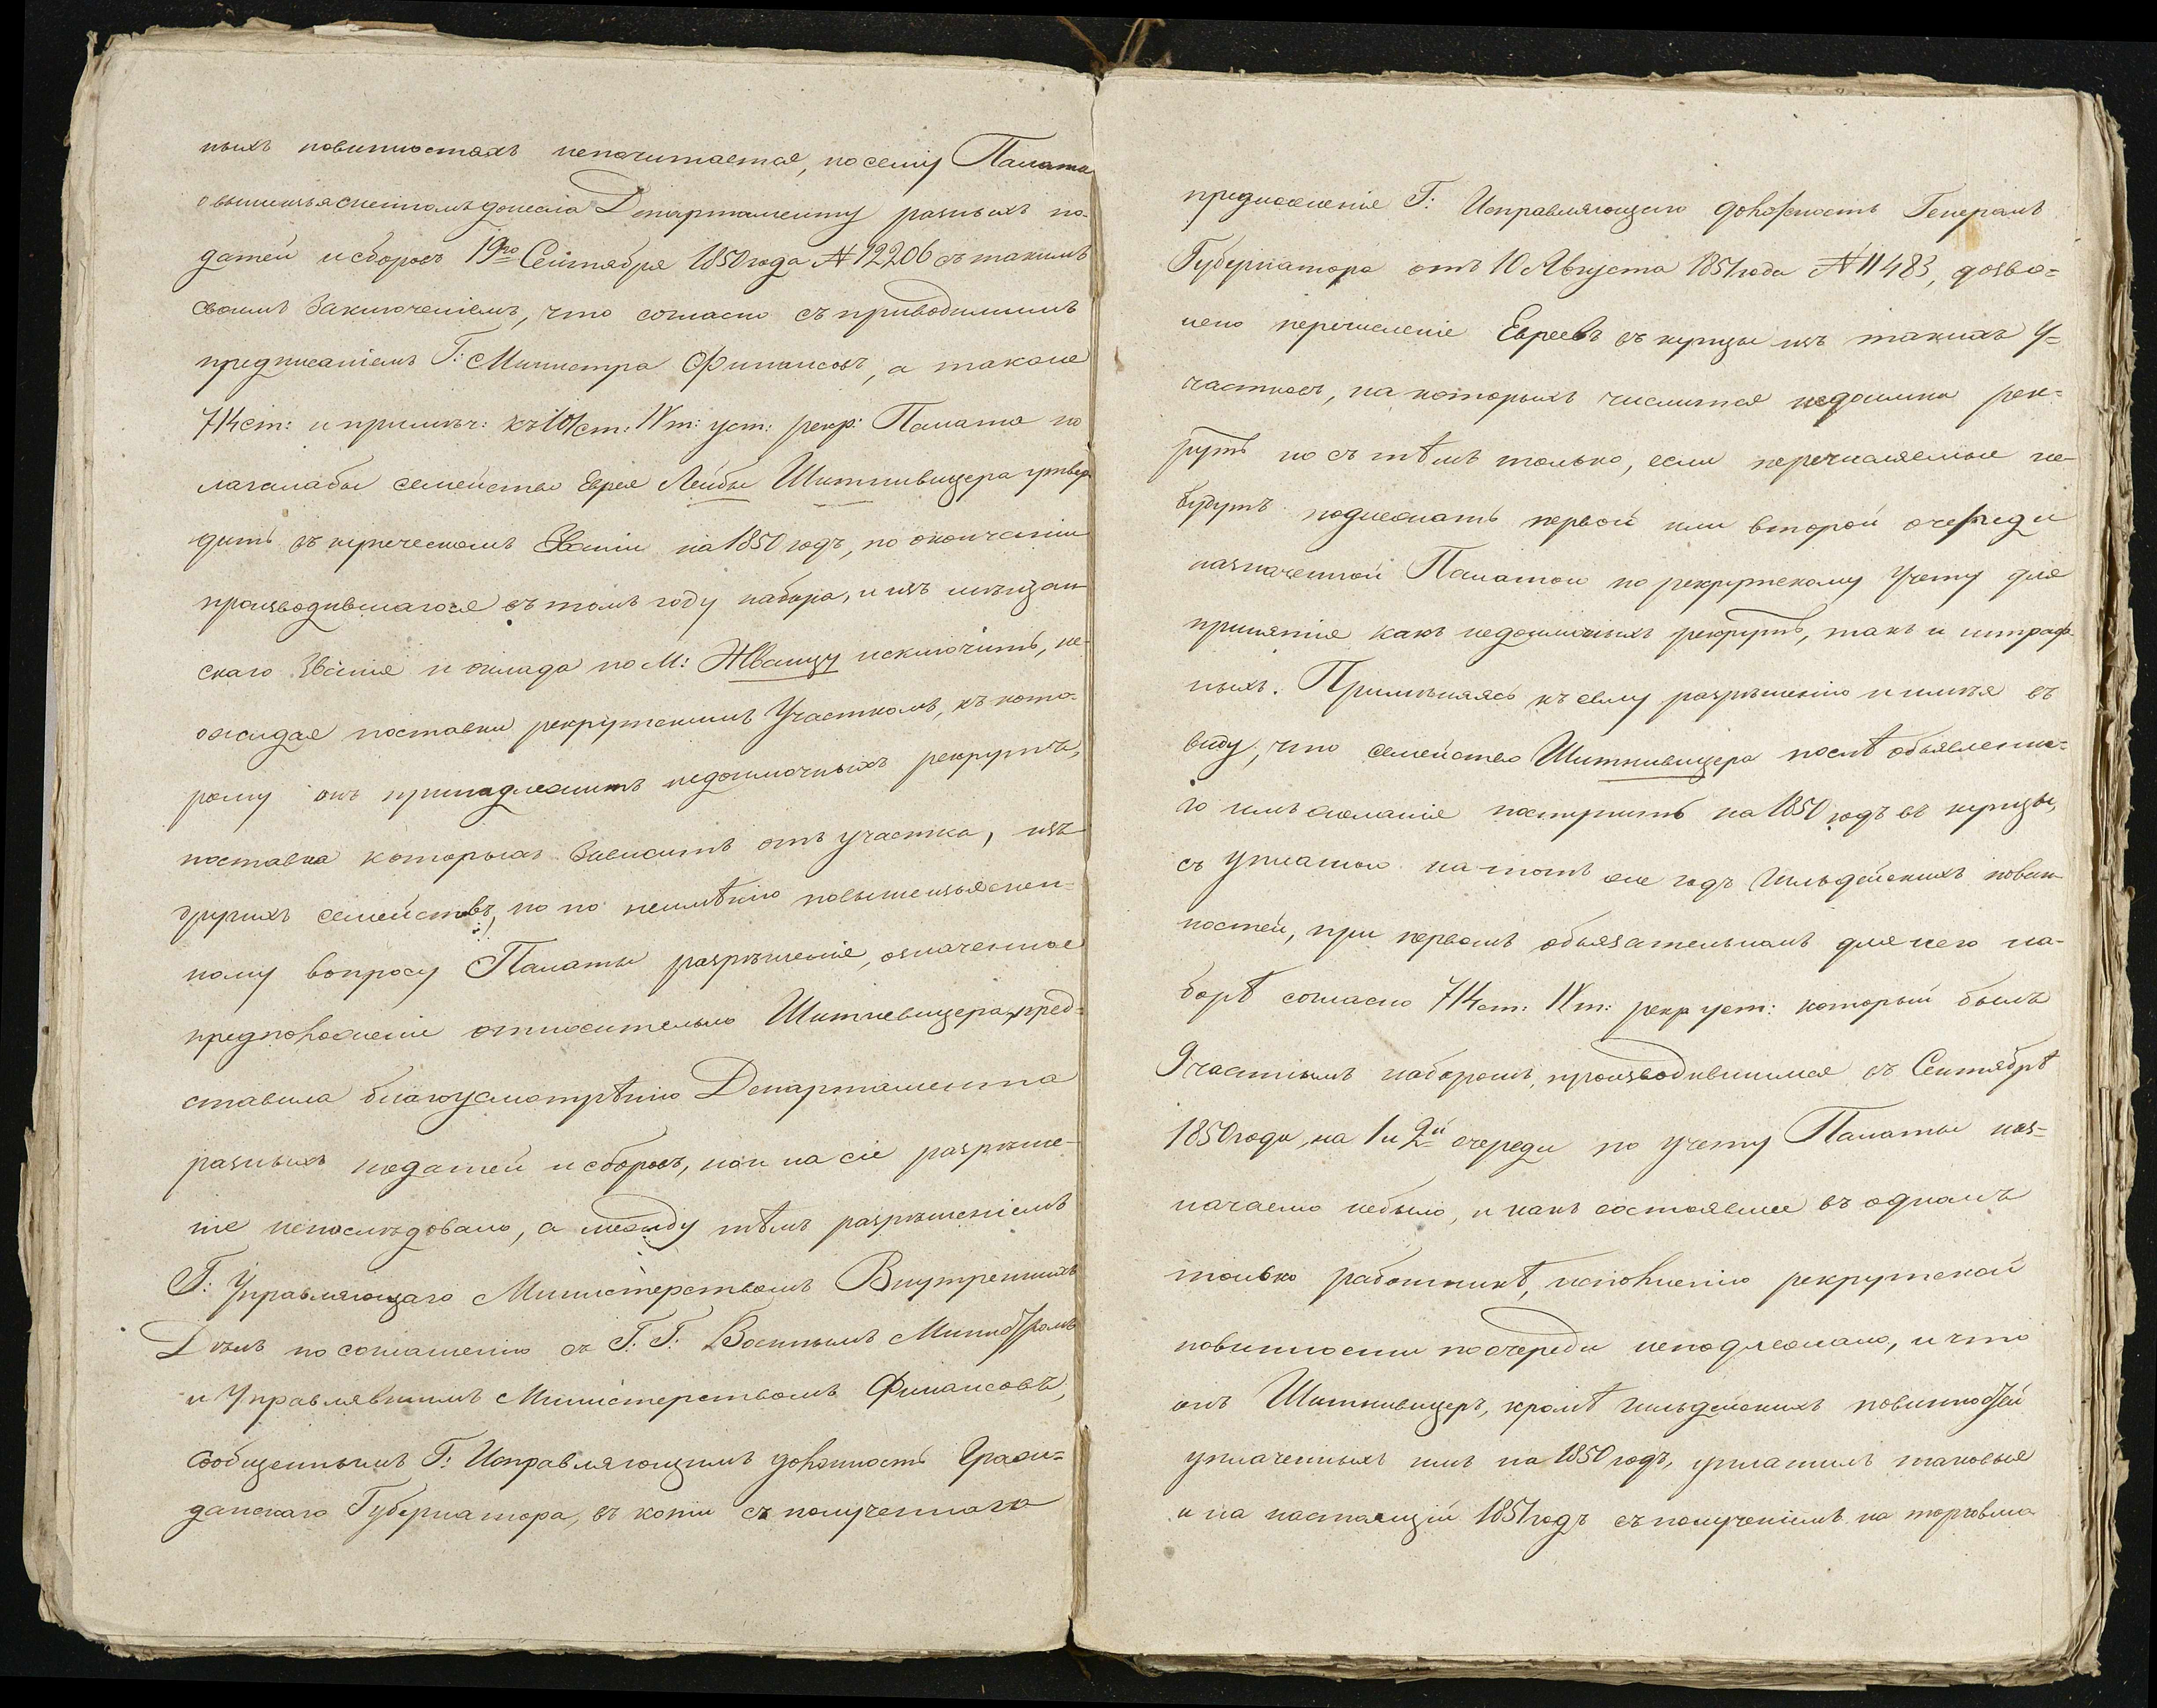 ныхъ повинностяхъ непочитается, по сему Палата
о вышеизъясненномъ донесла Департаменту разныхъ по-
датей и сборовъ 19го Сентября 1850 года № 12206 съ такимъ
своимъ заключеніемъ, что согласно съ приводимымъ
предписаніемъ Г: Министра Финансовъ, а также
714 ст: и примѣч: къ 10 ст: IV т: уст: рекр: Палата по
лагалабы семейство Еврея Лейбы Шитнивицера утвер
дить въ купеческомъ Званіи на 1850 годъ, по окончаніи
производившагося въ томъ году набора, и изъ мѣщан
скаго Званія и оклада по М: Жванцу исключить, не-
ожидая поставки рекрутскимъ Участкомъ, къ кото-
рому онъ принадлежитъ недоимочныхъ рекрутъ,
поставка которыхъ Зависитъ отъ участка, изъ
другихъ семействъ, но по неимѣнію повышеизъяснен-
ному вопросу Палаты разрѣшенія, означенное
предположеніе относительно Шитнивицера, пред-
ставила благоусмотрѣнію Департамента
разныхъ податей и сборовъ, кои на сіе разрѣше-
ніе непослѣдовало, а между тѣмъ разрѣшеніемъ
Г: Управляющаго Министерствомъ Внутреннихъ
Дѣлъ по соглашенію съ Г.Г. Военнымъ Министромъ
и Управлявшимъ Министерствомъ Финансовъ,
сообщеннымъ Г: Исправляющимъ должность Граж-
данскаго Губернатора, въ копіи съ полученнаго
предложенія Г: Исправляющаго должность Генералъ
Губернатора отъ 10 Августа 1851 года № 11483, дозво-
лено перечисленіе Евреевъ въ купцы изъ такихъ У-
частковъ, на которыхъ числится недоимка рек-
рутъ но съ тѣмъ только, если перечисляемые не-
будутъ подлежать первой или второй очереди
назначенной Палатою по рекрутскому Учету для
принятія какъ недоимочныхъ рекрутъ, такъ и штраф-
ныхъ. Примѣняясь къ сему разрѣшенію и имѣя въ
виду, что семейство Шитнивицера послѣ объявленна-
го имъ желанія поступить на 1850 годъ въ купцы,
съ уплатою на тотъ же годъ Гильдейскихъ повин-
ностей, при первомъ обязательномъ для него на-
борѣ согласно 714 ст: IV т: рекр уст: который былъ
9 частнымъ наборомъ, производившимся въ Сентябрѣ
1850 года, на 1 и 2й очереди по учету Палаты наз-
начаемо небыло, и какъ состоявшее въ одномъ
только работникѣ, исполненію рекрутской
повинности поочереди неподлежало, и что
онъ Шитнивицеръ, кромѣ гильдейскихъ повинностей
уплаченныхъ имъ на 1850 годъ, уплатилъ таковыя
и на настоящій 1851 годъ съ полученіемъ на торговлю